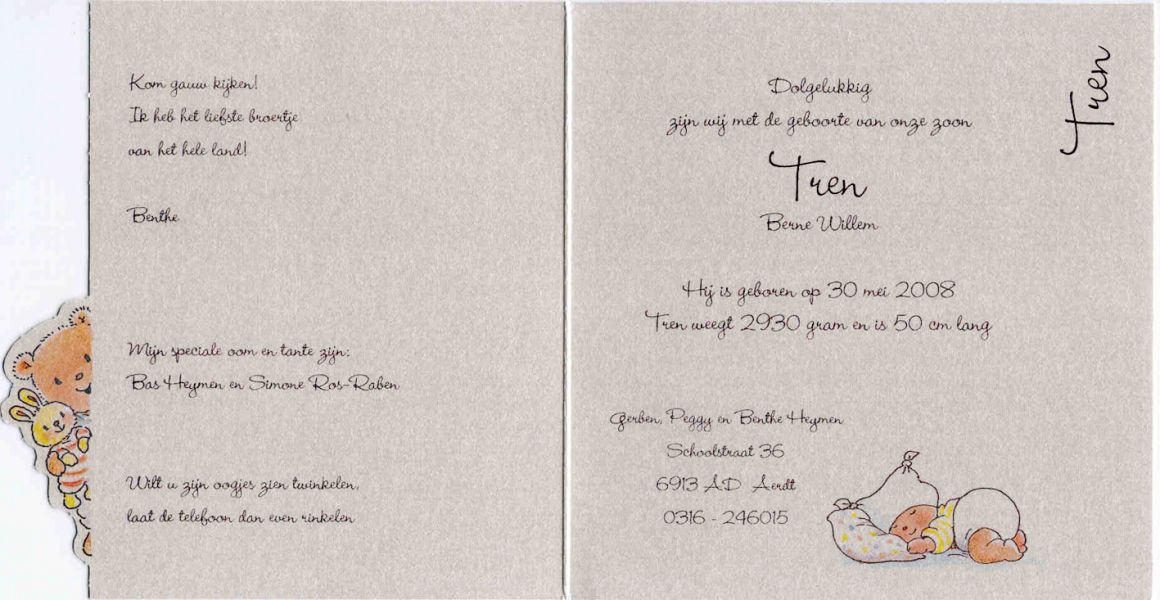 Kom gauw kijken!
Ik heb het liefste broertje
van het hele land!
Benthe
Mijn speciale oom en tante zijn:
Bas Heymen en Simone Ros-Raben
Wilt u zijn oogjes zien twinkelen,
laat de telefoon dan even rinkelen
Tren
Dolgelukkig
zijn wij met de geboorte van onze zoon
Tren
Berne Willem
Hij is geboren op 30 mei 2008
Tren weegt 2930 gram en is 50 cm lang
Gerben, Peggy en Benthe Heymen
Schoolstraat 36
6913 AD Aerdt
0316 - 246015